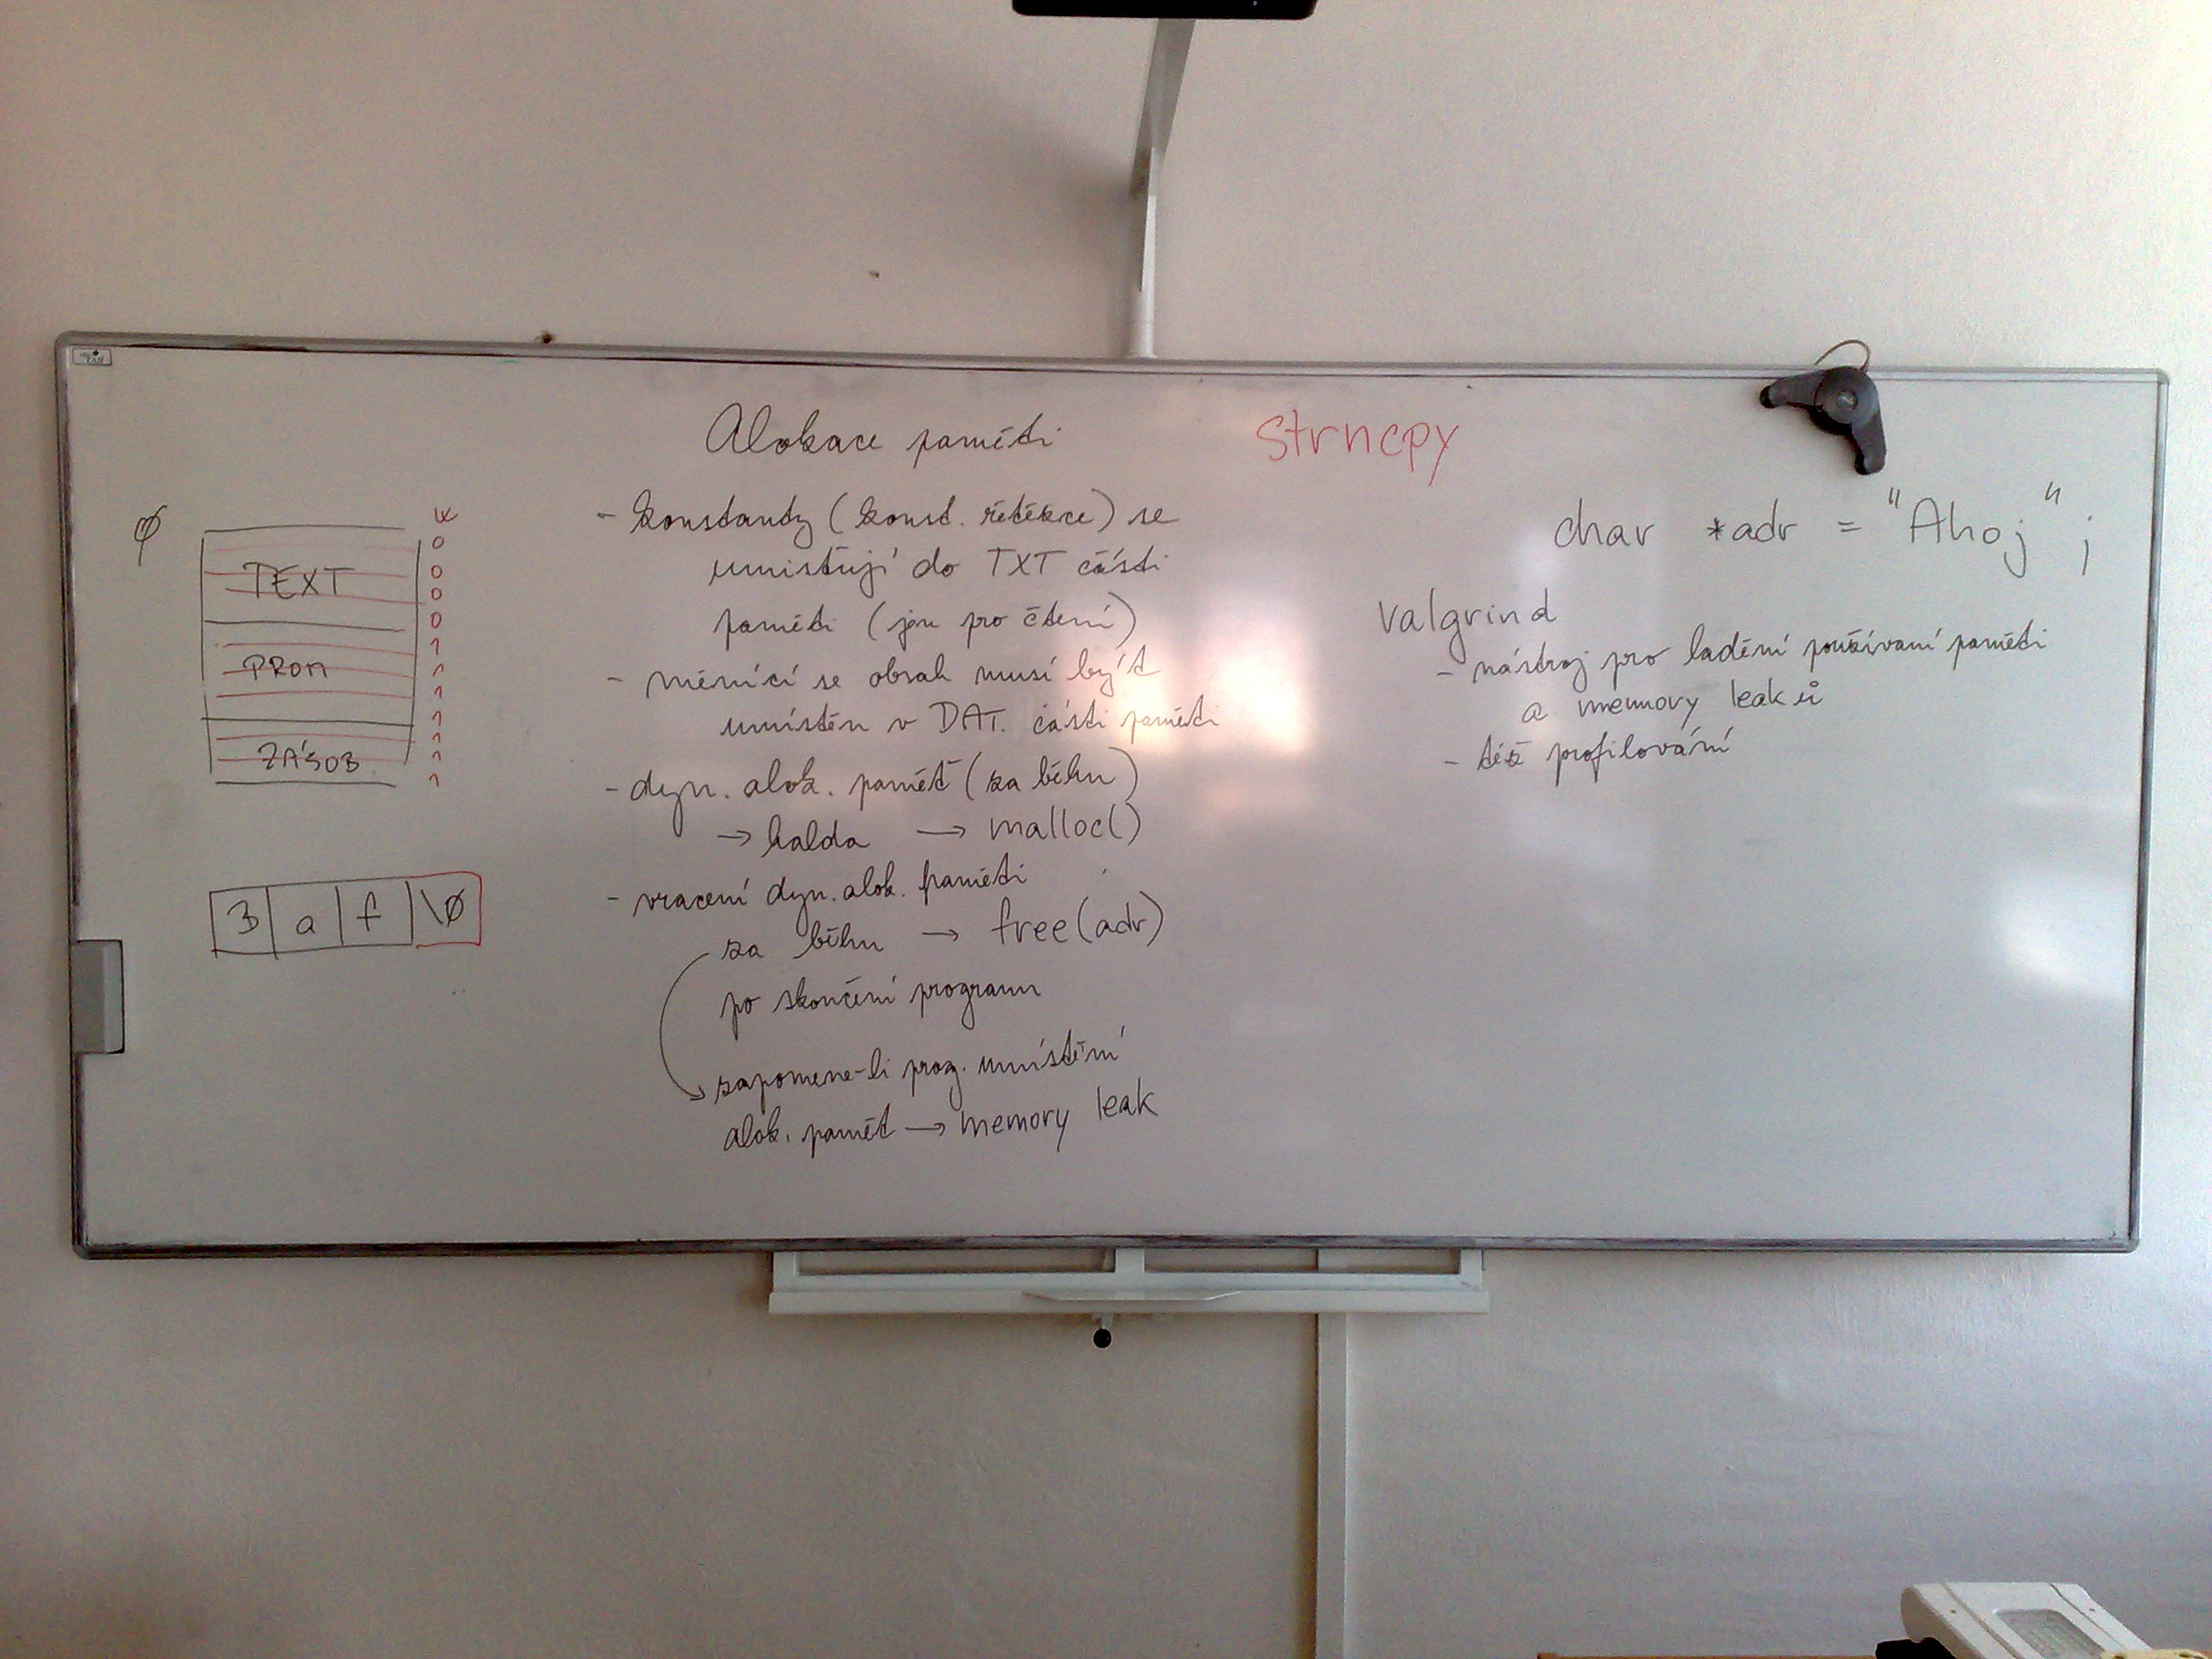 Alokace paměti
strncpy
φ
w
0
TEXT
0
0
0
1
PROM
1
1
1
1
ZÁSOB
1
1
3 a f \0
- konstanty (konst. řetězce) se
umisťují do TXT části
paměti (jen pro čtení)
- měnící se obsah musí být
umístěn v DAT. části paměti
- dyn. alok. paměť (za běhu)
→ halda → malloc()
- vracení dyn. alok. paměti
za běhu → free(adr)
po skončení programu
zapomene-li prog. umístění
alok. paměť → memory leak
char *adr = "Ahoj";
Valgrind
- nástroj pro ladění používaní paměti
a memory leaků
- též profilování